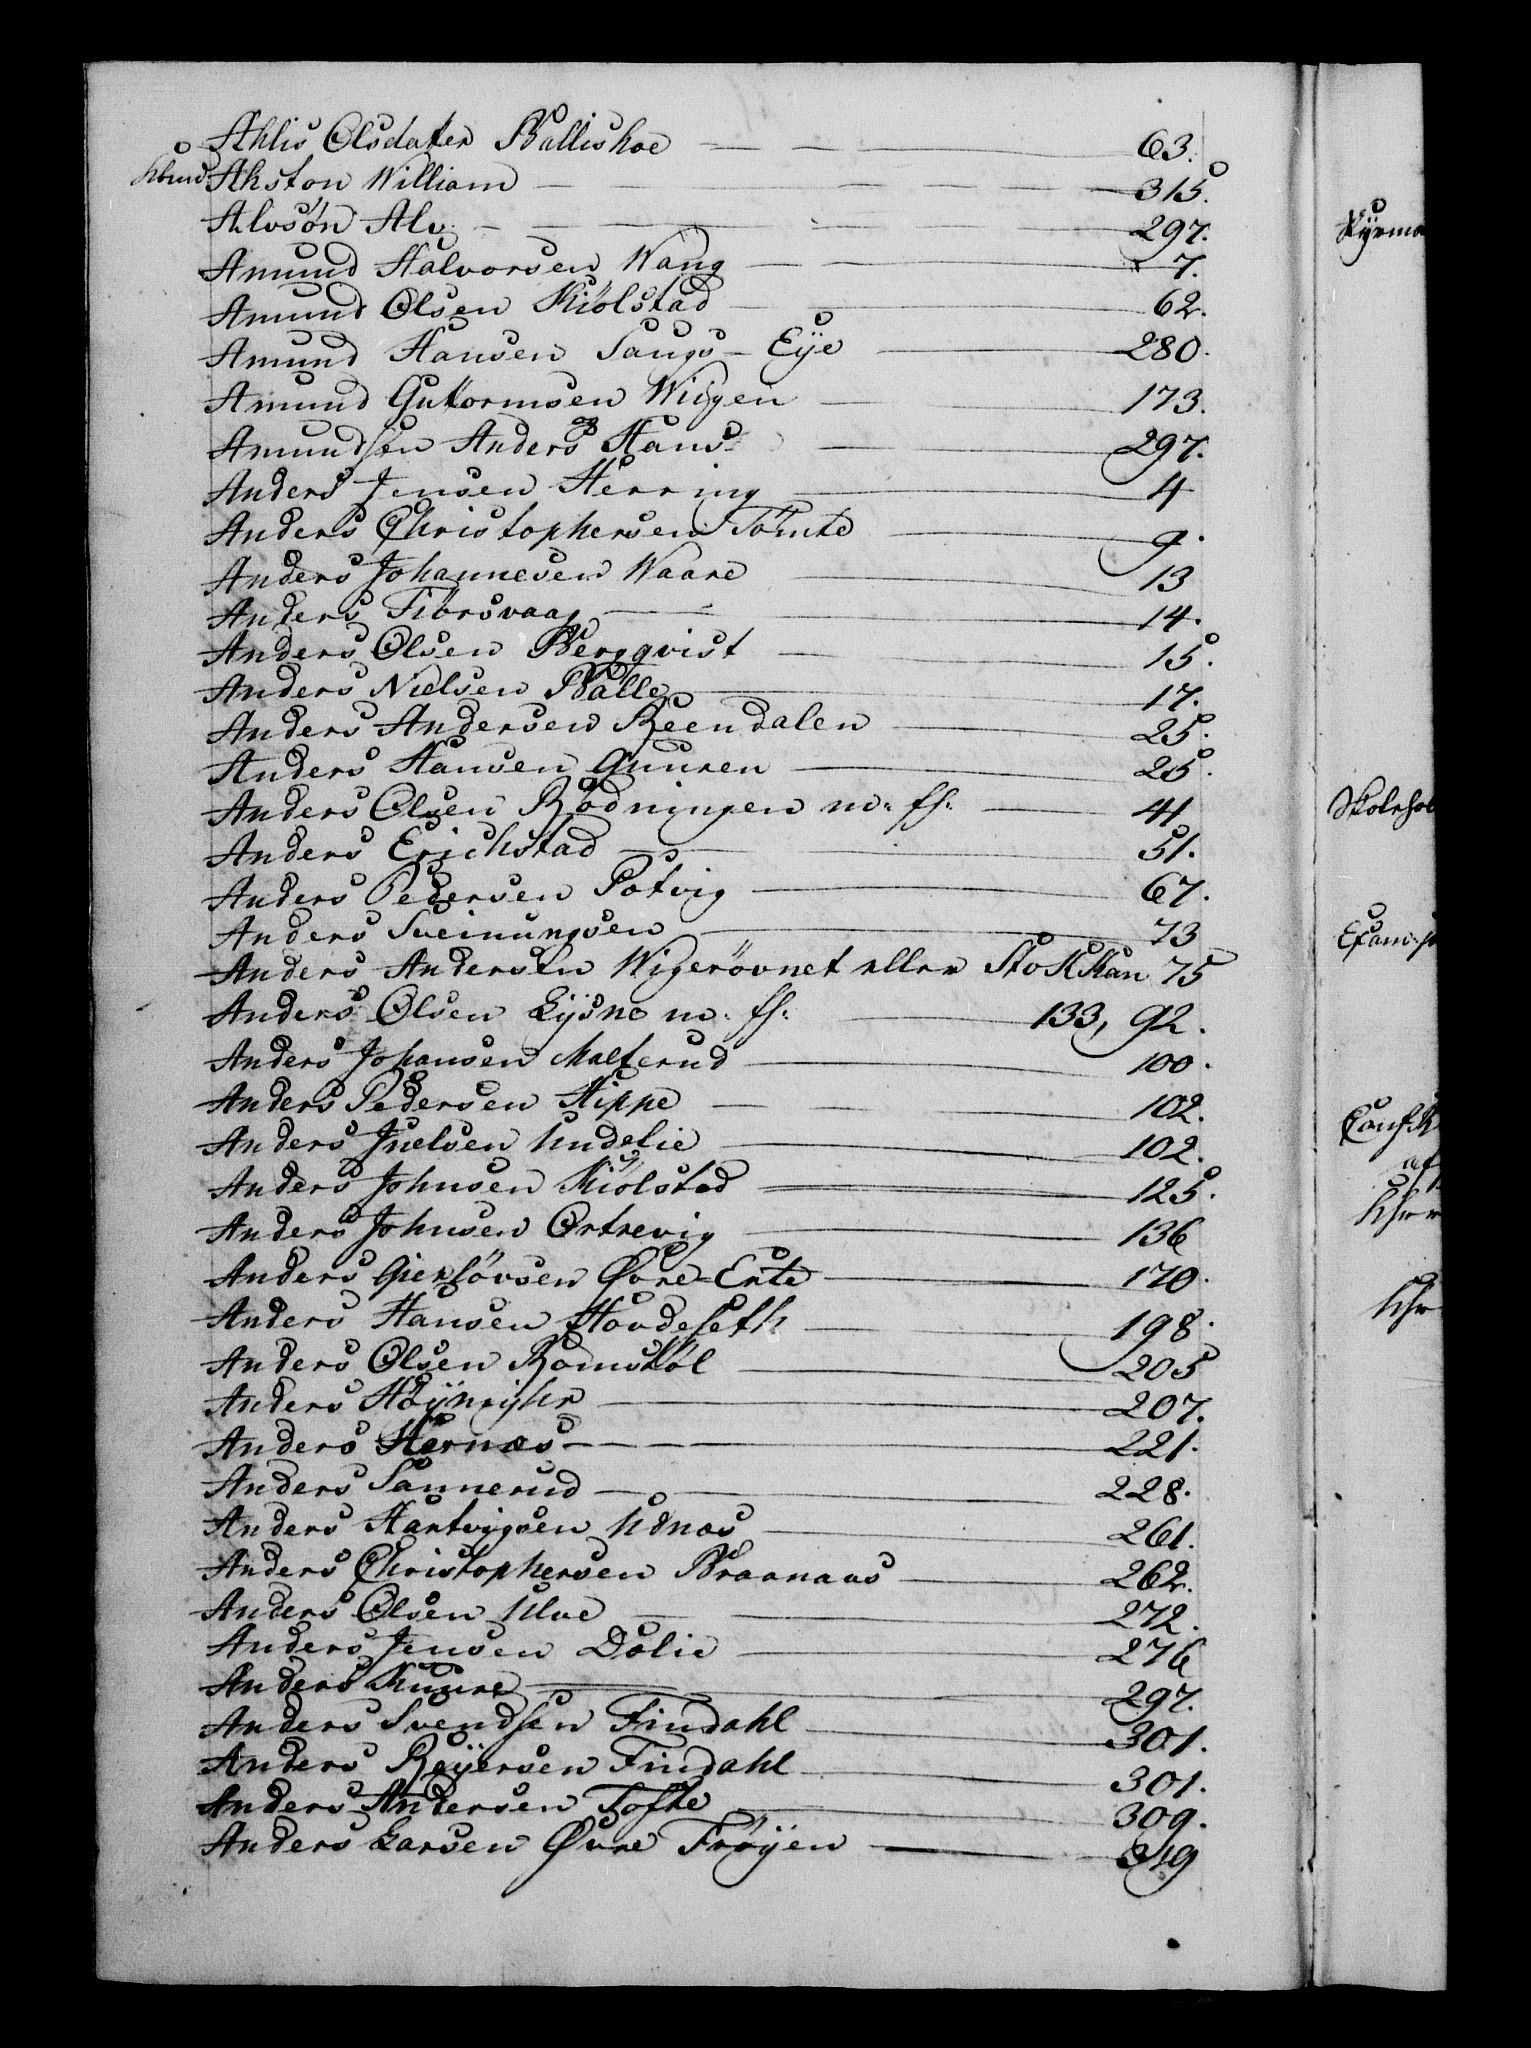 Ahlis Olsdatter Ballishoe — 63.
Ahston William — 315.
Alvsøn Alv. — 297.
Amund Halvorsen Wang — 7.
Amund Olsen Kiölstad — 62.
Amund Hansen Saugs-Eÿe — 280.
Amund Gutormsen Wiigen — 173.
Amundsen Anders & Hans — 297.
Anders Jensen Herring — 4
Anders Christophersen Tömte — 9.
Anders Johannesen Waare — 13
Anders Tiörsvaag — 14.
Anders Olsen Bergqvist — 15.
Anders Nielsen Balle — 17.
Anders Andersen Reendalen — 25.
Anders Hansen Gunren — 25.
Anders Olsen Rödningen m: fl: — 41
Anders Erichstad — 51.
Anders Pedersen Potvig — 67.
Anders Sveinungsen — 73
Anders Andersen Wigerövnet eller Stokkan 75
Anders Olsen Lÿsne m: fl: — 133, 92.
Anders Johansen Malterud — 100.
Anders Pedersen Hippe — 102.
Anders Juelsen Undelie — 102.
Anders Johnsen Kiölstad — 125.
Anders Johnsen Ortnevig — 136
Anders Gierlövsen Øvre-Ente — 170.
Anders Hansen Hovdeseth — 198.
Anders Olsen Romsköl — 205
Anders — 207.
Anders Hernæs — 221.
Anders Sannerud — 228.
Anders Hartvigsen Udnæs — 261.
Anders Christophersen Braanaas — 262.
Anders Olsen Ulve — 272.
Anders Jensen Dolie — 276
Anders Kuure — 297.
Anders Svendsen Findahl — 301.
Anders Reÿersen Findahl — 301.
Anders Andersen Tofte — 309.
Anders Larsen Øvre Fröÿen — 319